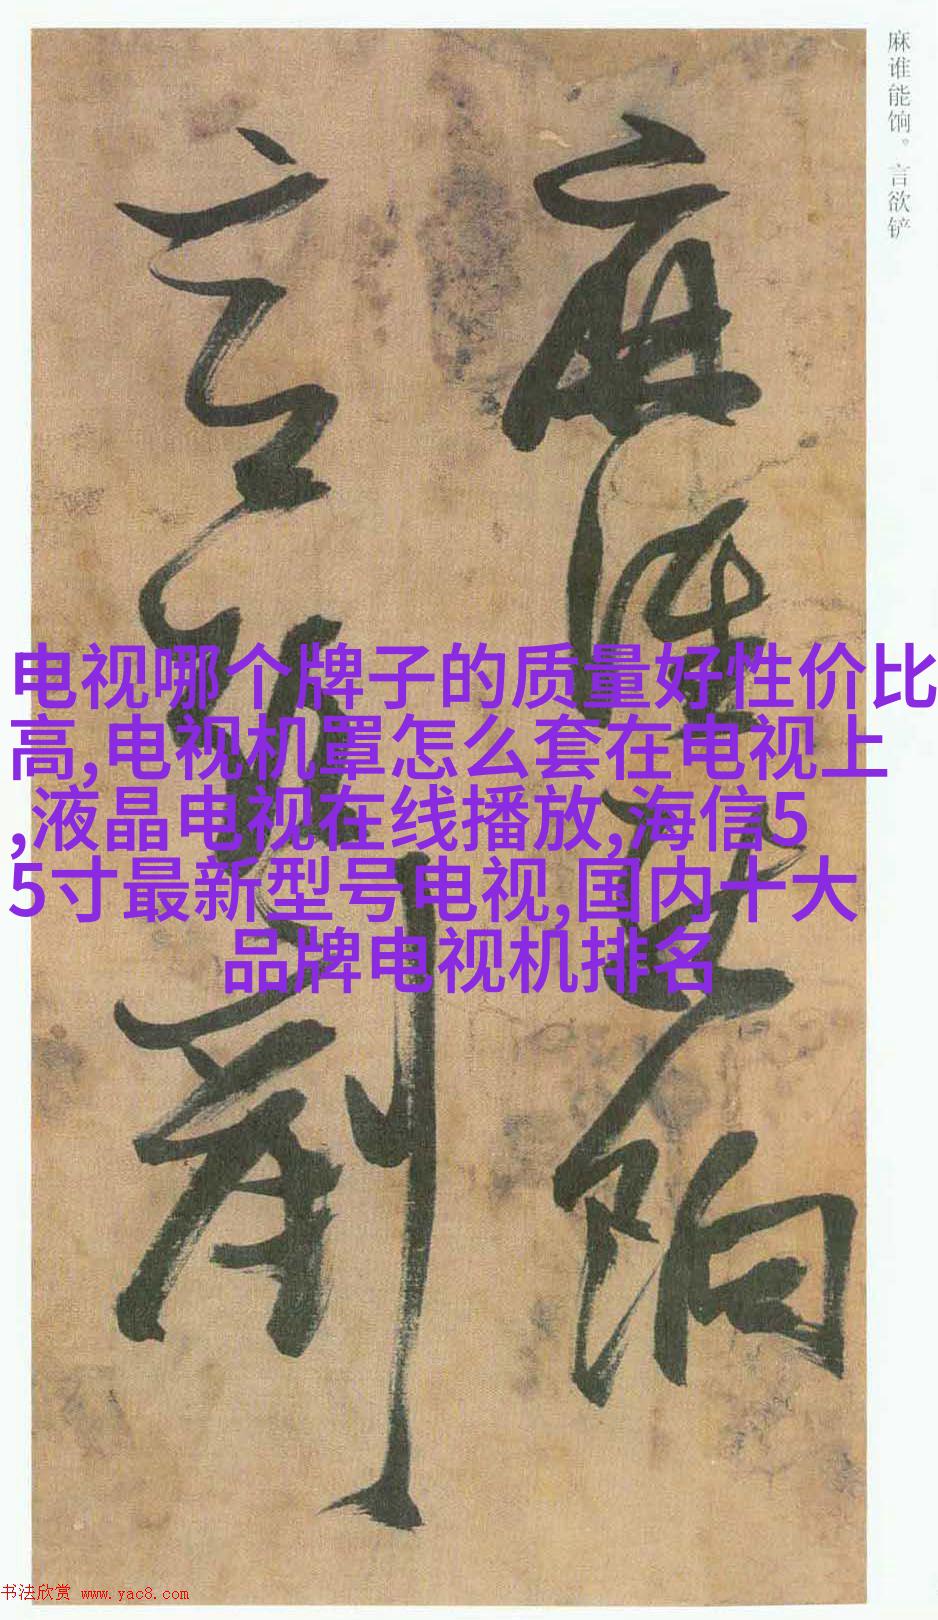 麻谁能饷。言欲铲
麻谁能饷
言欲铲
电视哪个牌子的质量好性价比
高,电视机罩怎么套在电视上
,液晶电视在线播放,海信5
5寸最新型号电视,国内十大
品牌电视机排名
书法欣赏 www.yac8.com